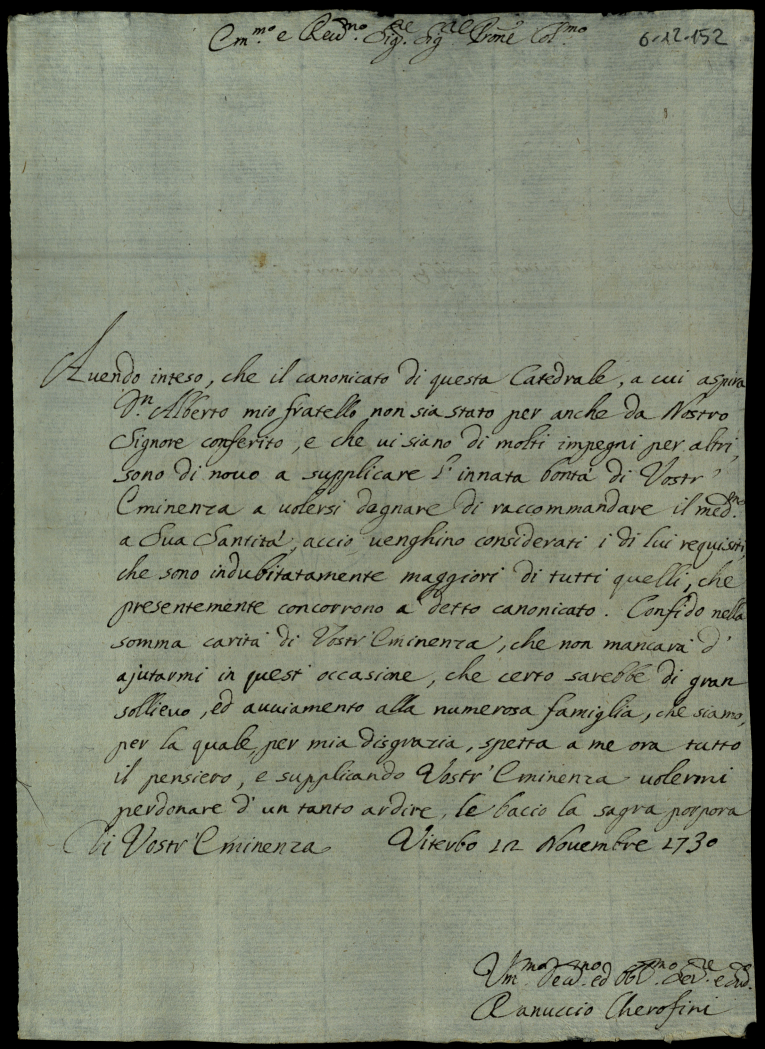 Em.mo e Reu.mo Sig.re Sig.re Prone Col.mo 6-12-152
Auendo inteso, che il canonicato di questa Catedrale, a cui aspira
D.n Alberto mio fratello non sia stato per anche da Nostro
Signore conferito, e che ui siano di molti impegni per altri,
sono di nouo a supplicare l'innata bontà di Vostr'
Eminenza a uolersi degnare di raccommandare il med.mo
a Sua Santità, acciò uenghino considerati i di lui requisiti,
che sono indubitatamente maggiori di tutti quelli, che
presentemente concorrono a detto canonicato. Confido nella
somma carità di Vostr'Eminenza, che non mancarà d'
ajutarmi in quest'occasione, che certo sarebbe di gran
sollieuo, ed auuiamento alla numerosa famiglia, che siamo,
per la quale, per mia disgrazia, spetta a me ora tutto
il pensiero, e supplicando Vostr'Eminenza uolermi
perdonare d'un tanto ardire, le bacio la sagra porpora
Di Vostr'Eminenza Viterbo 12 Nouembre 1730
Vm.mo Deu.mo ed Obl.mo Ser.re
Ranuccio Cherofini